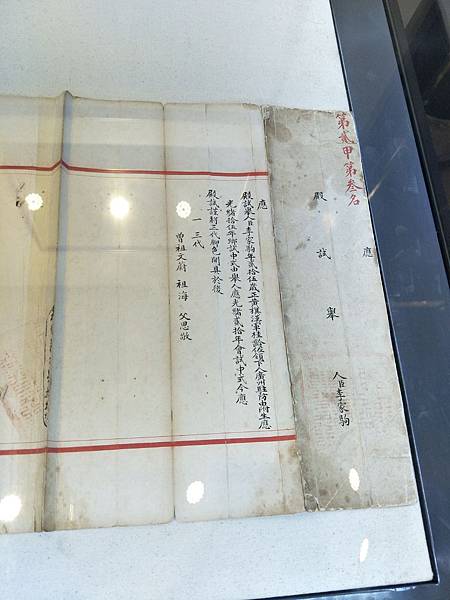 第貳甲第叁名
應
殿試舉
人臣李家駒
應
殿試舉人臣李家駒年貳拾伍歲正黃旗漢軍桂齡佐領下人廣州駐防由附生應
光緒拾伍年鄉試中式由舉人應光緒貳拾年會試中式今應
殿試謹將三代腳色開具於後
一三代
曾祖文蔚 祖海 父思敬